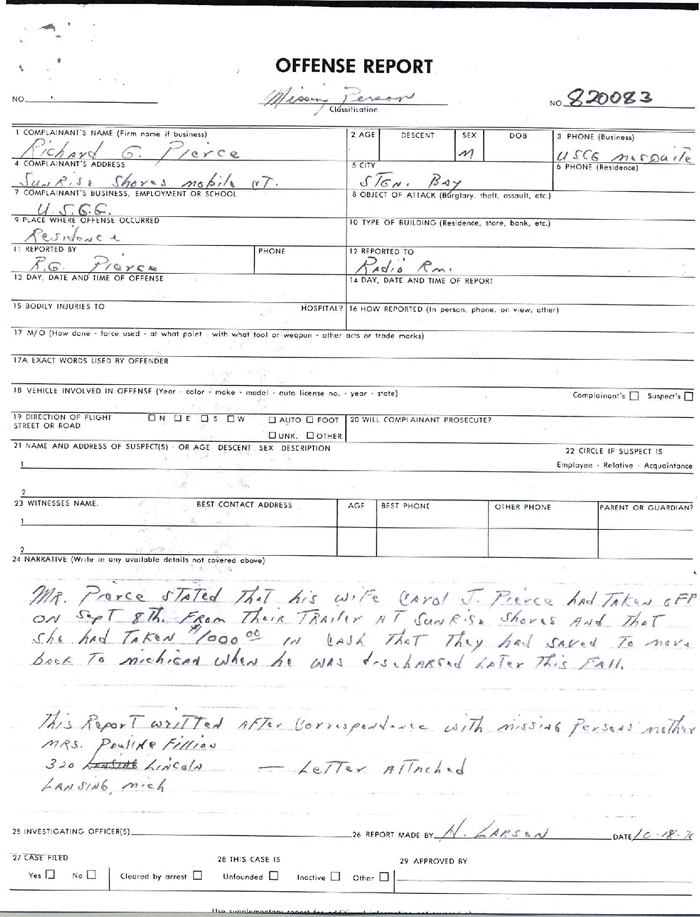 OFFENSE REPORT
NO.
Missing Person
Classification
NO. 820083
1 COMPLAINANT'S NAME (Firm name if business)
Richard G. Pierce
2 AGE
DESCENT
SEX
M
DOB
3 PHONE (Business)
USCG Mesquite
4 COMPLAINANT'S ADDRESS
SunRise Shores mobile CT.
5 CITY
STGN. BAY
6 PHONE (Residence)
7 COMPLAINANT'S BUSINESS, EMPLOYMENT OR SCHOOL
U.S.C.G.
8 OBJECT OF ATTACK (Burglary, theft, assault, etc.)
9 PLACE WHERE OFFENSE OCCURRED
Residence
10 TYPE OF BUILDING (Residence, store, bank, etc.)
11 REPORTED BY
R.G. Pierce
PHONE
12 REPORTED TO
Radio Rm.
13 DAY, DATE AND TIME OF OFFENSE
14 DAY, DATE AND TIME OF REPORT
15 BODILY INJURIES TO
HOSPITAL?
16 HOW REPORTED (In person, phone, on view, other)
17 M/O (How done - force used - at what point - with what tool or weapon - other acts or trade marks)
17A EXACT WORDS USED BY OFFENDER
18 VEHICLE INVOLVED IN OFFENSE (Year - color - make - model - auto license no. - year - state)
Complainant's ☐ Suspect's ☐
19 DIRECTION OF FLIGHT ☐ N ☐ E ☐ S ☐ W ☐ AUTO ☐ FOOT
STREET OR ROAD ☐ UNK. ☐ OTHER
20 WILL COMPLAINANT PROSECUTE?
21 NAME AND ADDRESS OF SUSPECT(S) - OR AGE DESCENT SEX DESCRIPTION
22 CIRCLE IF SUSPECT IS
Employee - Relative - Acquaintance
1
2
23 WITNESSES NAME. BEST CONTACT ADDRESS AGE BEST PHONE OTHER PHONE PARENT OR GUARDIAN?
1
2
24 NARRATIVE (Write in any available details not covered above)
MR. Pierce stated that his wife Carol J. Pierce had taken off
on Sept 8th. From their trailer at SunRise Shores and that
she had taken $1000.00 in cash that they had saved to move
back to Michigan when he was discharged later this Fall.
This Report written after correspondence with missing persons mother
MRS. Pauline Fillion
320 Lansing Lincoln — Letter Attached
Lansing, Mich
25 INVESTIGATING OFFICER(S)
26 REPORT MADE BY H. LARSON
DATE 10-18-
27 CASE FILED
Yes ☐ No ☐ Cleared by arrest ☐
28 THIS CASE IS
Unfounded ☐ Inactive ☐ Other ☐
29 APPROVED BY